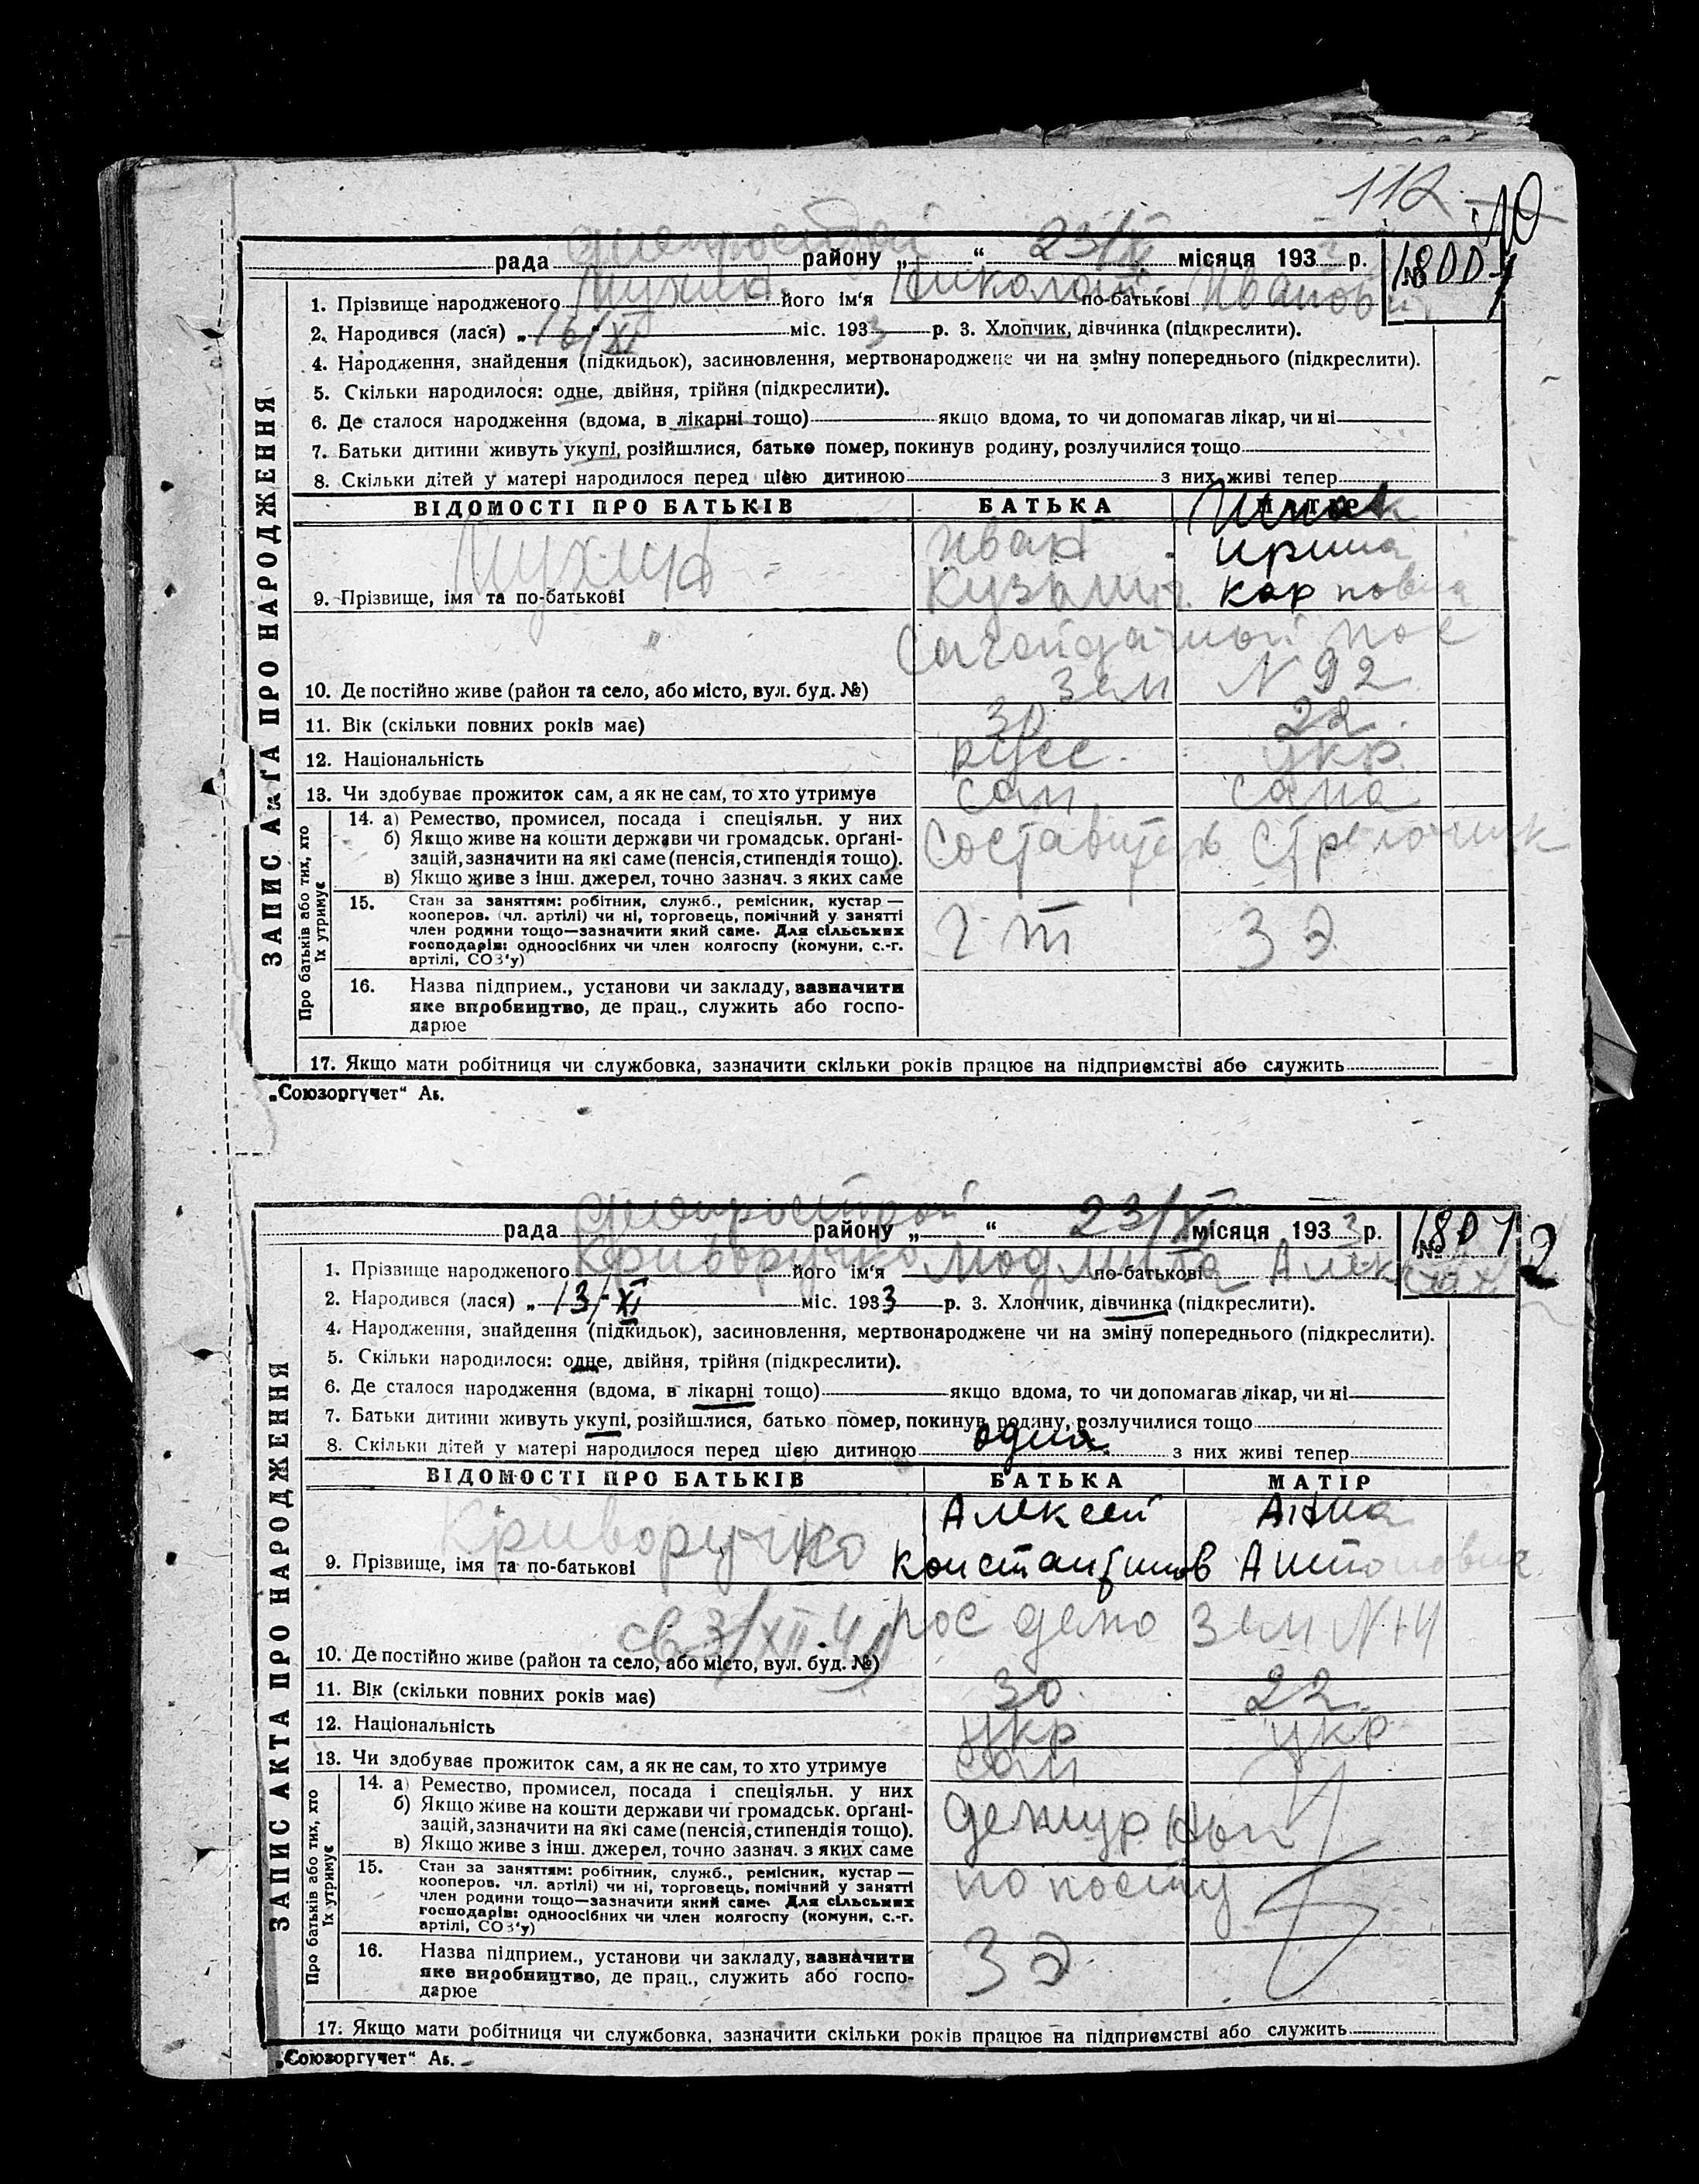 112
10
Днепрострой 23/XI
рада району „ “ місяця 1933 р. № 1800
1. Прізвище народженого Мухин його ім‘я Николай по-батькові Иванович
2. Народився (лася) „16/XI міс. 1933 р. 3. Хлопчик, дівчинка (підкреслити).
4. Народження, знайдення (підкидьок), засиновлення, мертвонароджене чи на зміну попереднього (підкреслити).
5. Скільки народилося: одне, двійня, трійня (підкреслити).
6. Де сталося народження (вдома, в лікарні тощо) якщо вдома, то чи допомагав лікар, чи ні
7. Батьки дитини живуть укупі, розійшлися, батько помер, покинув родину, розлучилися тощо
8. Скільки дітей у матері народилося перед цією дитиною з них живі тепер
ЗАПИС АКТА ПРО НАРОДЖЕННЯ
ВІДОМОСТІ ПРО БАТЬКІВ БАТЬКА МАТІР
Иван Ирина
9. Прізвище, імя та по-батькові Кузьмич Карповна
пос
10. Де постійно живе (район та село, або місто, вул. буд. №) зем N 92
11. Вік (скільки повних років має) 30 22
12. Національність русс. укр.
13. Чи здобуває прожиток сам, а як не сам, то хто утримує сам сама
Про батьків або тих, хто їх утримує
14. а) Ремество, промисел, посада і спеціяльн. у них
б) Якщо живе на кошти держави чи громадськ. орґані-
зацій, зазначити на які саме (пенсія, стипендія тощо). Составитель Стрелочник
в) Якщо живе з інш. джерел, точно зазнач. з яких саме
15. Стан за заняттям: робітник, служб., ремісник, кустар —
кооперов. (чл. артілі) чи ні, торговець, помічний у занятті
член родини тощо—зазначити який саме. Для сільських
господарів: одноосібних чи член колгоспу (комуни, с.-г.
артілі, СОЗ‘у)
16. Назва підприєм., установи чи закладу, зазначити
яке виробництво, де прац., служить або госпо-
дарює
17. Якщо мати робітниця чи службовка, зазначити скільки років працює на підприємстві або служить
„Союзоргучет“ Аб.
Днепрострой 23/XI
рада району „ “ місяця 1933 р. № 1801
2
1. Прізвище народженого Криворучко його ім‘я Людмила по-батькові Алек
2. Народився (лася) „13/XI міс. 1933 р. 3. Хлопчик, дівчинка (підкреслити).
4. Народження, знайдення (підкидьок), засиновлення, мертвонароджене чи на зміну попереднього (підкреслити).
5. Скільки народилося: одне, двійня, трійня (підкреслити).
6. Де сталося народження (вдома, в лікарні тощо) якщо вдома, то чи допомагав лікар, чи ні
7. Батьки дитини живуть укупі, розійшлися, батько помер, покинув родину, розлучилися тощо
8. Скільки дітей у матері народилося перед цією дитиною одна з них живі тепер
ЗАПИС АКТА ПРО НАРОДЖЕННЯ
ВІДОМОСТІ ПРО БАТЬКІВ БАТЬКА МАТІР
Криворучко Алексей Анна
9. Прізвище, імя та по-батькові Константинов Антоновна
пос депо зем N
10. Де постійно живе (район та село, або місто, вул. буд. №)
11. Вік (скільки повних років має) 30 22
12. Національність укр укр
13. Чи здобуває прожиток сам, а як не сам, то хто утримує сам
Про батьків або тих, хто їх утримує
14. а) Ремество, промисел, посада і спеціяльн. у них
б) Якщо живе на кошти держави чи громадськ. орґані-
зацій, зазначити на які саме (пенсія, стипендія тощо). дежурный
в) Якщо живе з інш. джерел, точно зазнач. з яких саме
15. Стан за заняттям: робітник, служб., ремісник, кустар — по посту
кооперов. чл. артілі) чи ні, торговець, помічний у занятті
член родини тощо—зазначити який саме. Для сільських
господарів: одноосібних чи член колгоспу (комуни, с.-г.
артілі, СОЗ‘у)
16. Назва підприєм., установи чи закладу, зазначити
яке виробництво, де прац., служить або госпо-
дарює
17. Якщо мати робітниця чи службовка, зазначити скільки років працює на підприємстві або служить
„Союзоргучет“ Аб.